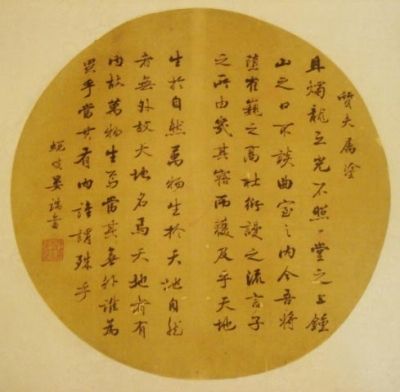 夫屬塗
且燭龍之光不照一堂之上鍾
山之口不談曲室之內今吾將
墮崔巍之高杜衍謾之流言子
之所由幾其寤而獲及乎天地
生於自然萬物生於天地自然
者無外故天地名焉天地者有
內故萬物生焉當其無外誰為
異乎當其有內誰謂殊乎
晏端書